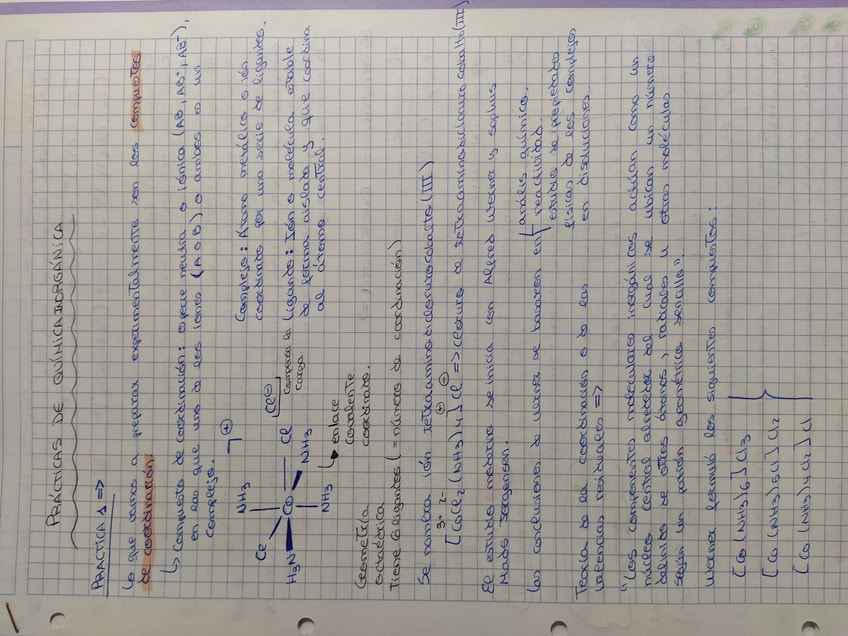 PRÁCTICAS DE QUÍMICA INORGÁNICA
PRACTICA 1 =>
Lo que vamos a preparar experimentalmente son los compuestos
de coordinación.
↳ Compuesto de coordinación: especie neutra o iónica (AB, AB⁺, AB⁻),
en la que uno de los iones (A o B) o ambos es un
complejo.
Complejo: Átomo metálico o ión
coordinado por una serie de ligandos.
Ligando: Ión o molécula estable
de forma aislada y que coordina
al átomo central.
NH3
⊕
Cl
Cl⊖
Compensa la
carga.
Co
Cl
H3N
NH3
NH3
↳ enlace
covalente
coordinado.
Geometría
octaédrica
Tiene 6 ligandos (= número de coordinación)
Se nombra ión tetraamino diclorurocobalto (III)
3+ 2- ⊕ ⊖
[CoCl2(NH3)4]Cl => Cloruro de tetraaminodicloruro cobalto (III)
El estudio moderno se inicia con Alfred Werner y Sophus
Mads Jorgensen.
Las conclusiones de Werner se basaron en { análisis químicos.
reactividad.
estudio de propiedades
físicas de los complejos
en disoluciones
Teoría de la coordinación o de las
valencias residuales =>
"Los componentes moleculares inorgánicos actúan como un
núcleo central alrededor del cual se ubican un número
definido de otros átomos, radicales u otras moléculas
según un patrón geométrico sencillo".
Werner formuló los siguientes compuestos:
[Co(NH3)6]Cl3
[Co(NH3)5Cl]Cl2
[Co(NH3)4Cl2]Cl